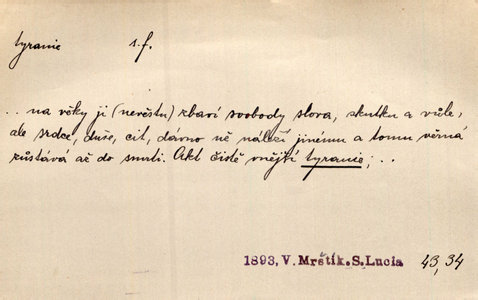 tyranie s.f.
.. na věky ji (nevěstu) zbaví svobody slova, skutku a vůle,
ale srdce, duše, cit, dávno ně náleží jinému a tomu věrná
zůstává až do smrti. Akt čistě vnější tyranie; ..
1893, V. Mrštík. S. Lucia 43, 34